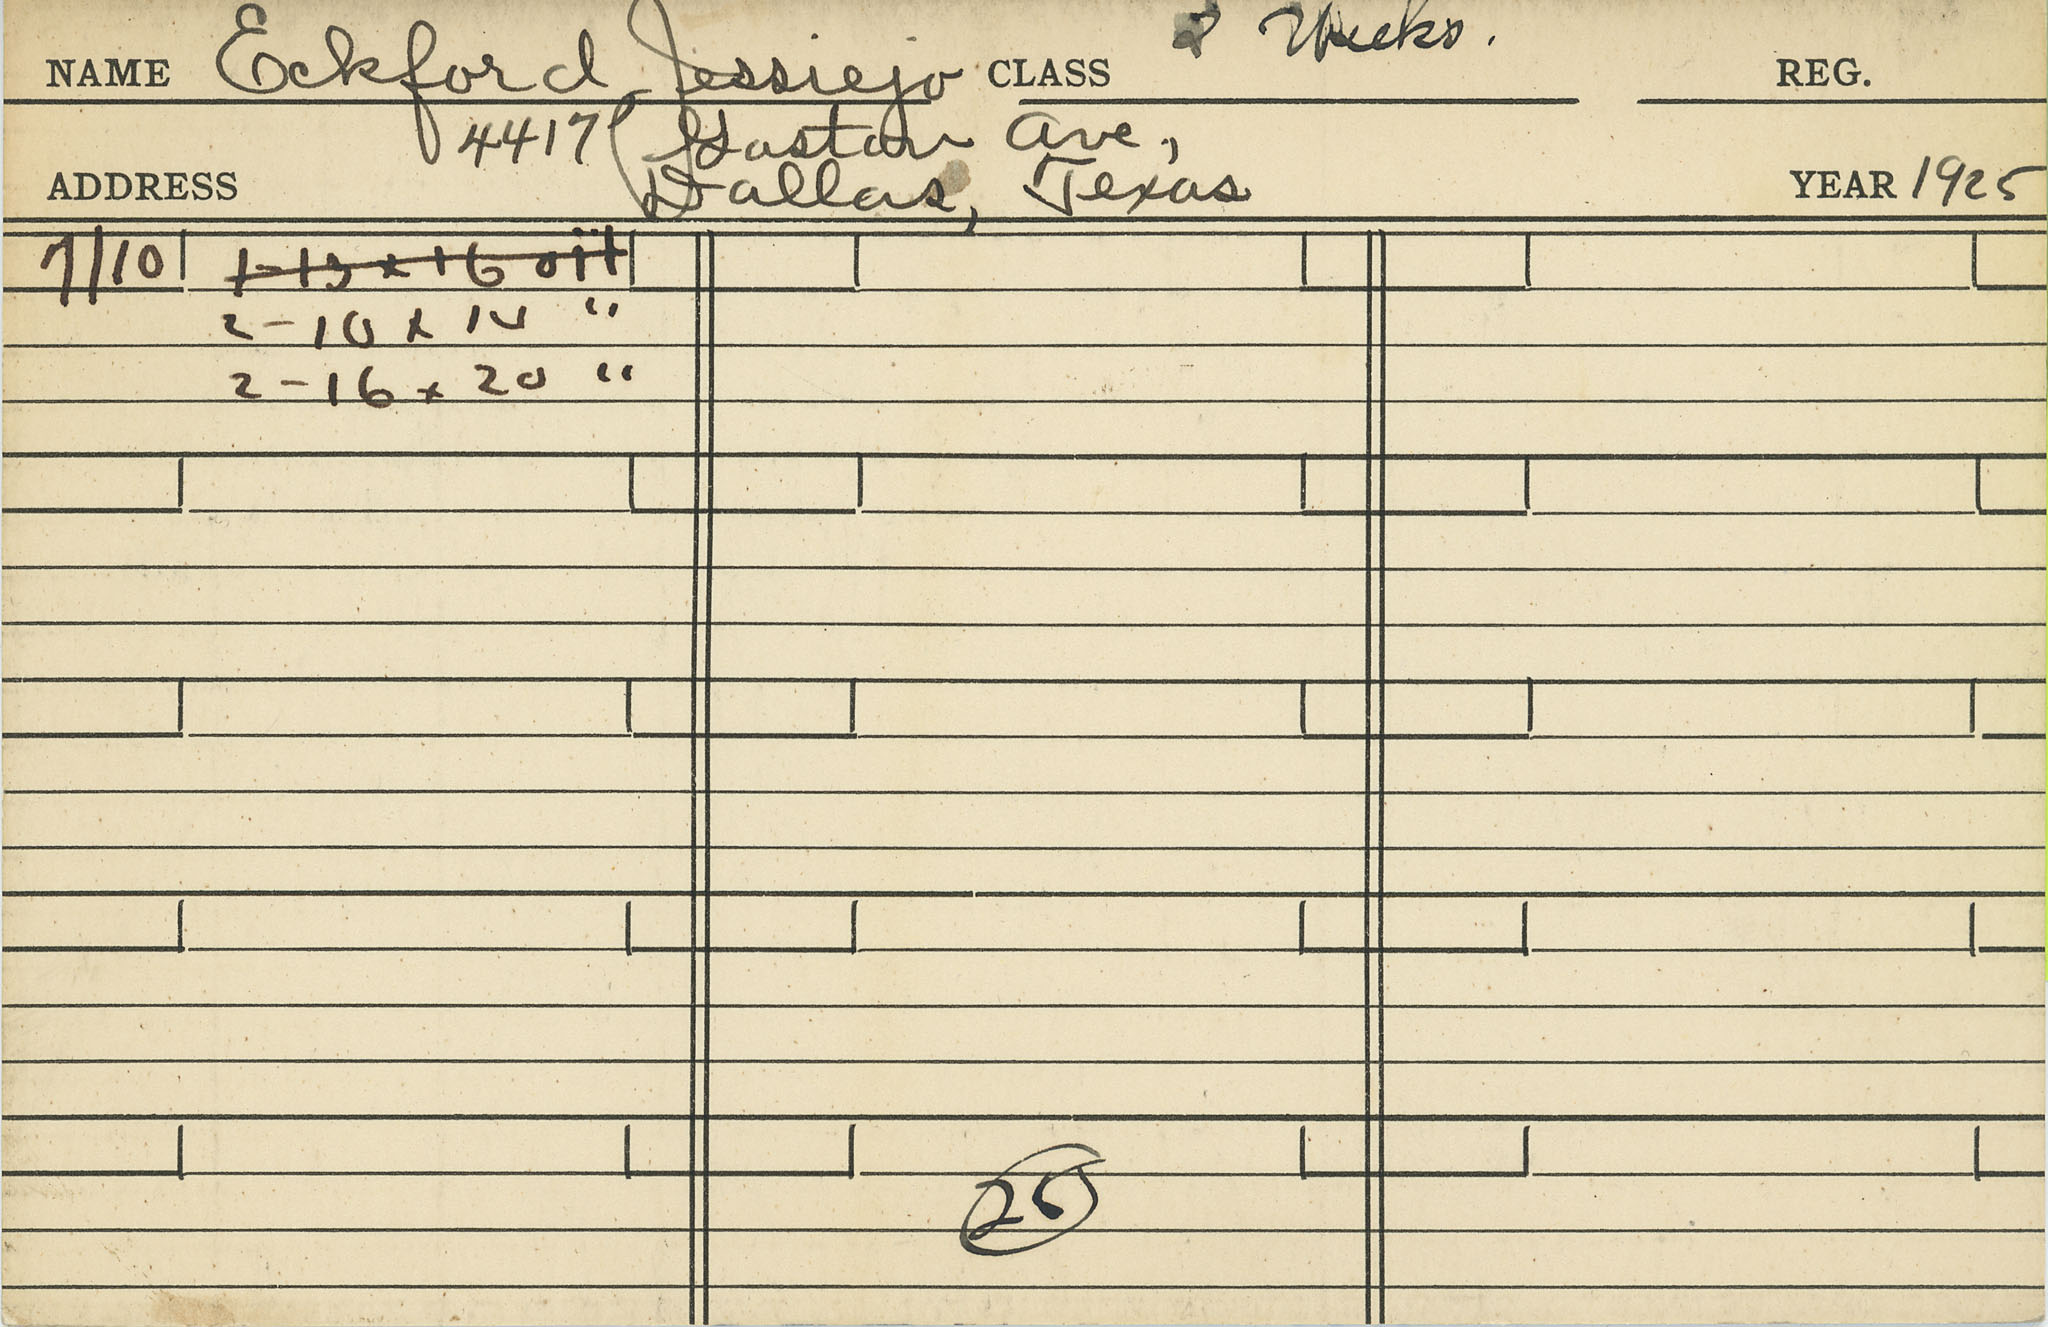 NAME Eckford, Jessiejo CLASS 2 Weeks. REG.
4417 Gaston Ave.,
ADDRESS Dallas, Texas YEAR 1925
7/10 1-13 x 16 oil
2-10 x 14 "
2-16 x 20 "
25